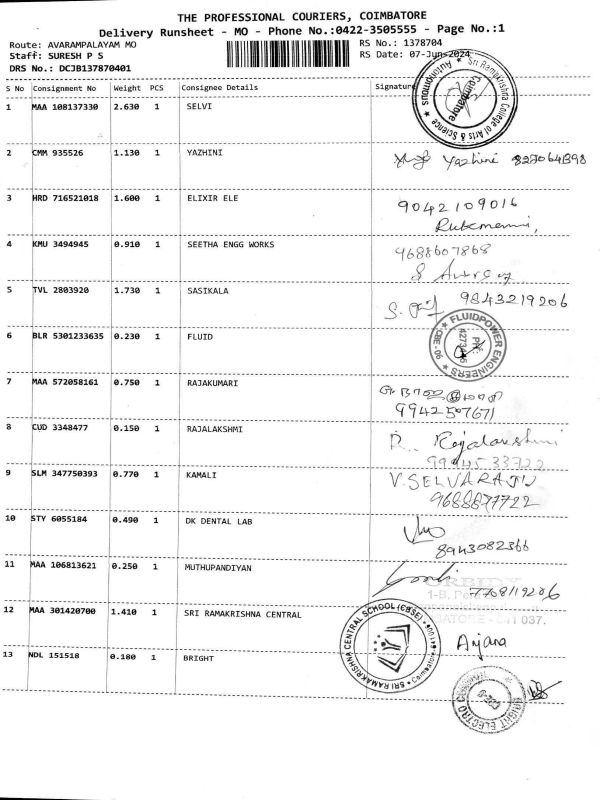 THE PROFESSIONAL COURIERS, COIMBATORE
Delivery Runsheet - MO - Phone No.:0422-3505555 - Page No.:1
Route: AVARAMPALAYAM MO RS No.: 1378704
Staff: SURESH P S RS Date: 07-Jun-2024
DRS No.: DCJB137870401
S No Consignment No Weight PCS Consignee Details Signature
1 MAA 108137330 2.630 1 SELVI
Sri Ramakrishna College of Arts & Science Autonomous Coimbatore
2 CMM 935526 1.130 1 YAZHINI
Yazhini
3 HRD 716521018 1.600 1 ELIXIR ELE
9042109016
4 KMU 3494945 0.910 1 SEETHA ENGG WORKS
9688607868
5 TVL 2803920 1.730 1 SASIKALA
9843219206
6 BLR 5301233635 0.230 1 FLUID
FLUIDPOWER ENGINEERS
7 MAA 572058161 0.750 1 RAJAKUMARI
9942507671
8 CUD 3348477 0.150 1 RAJALAKSHMI
R. Rajalakshmi
9 SLM 347750393 0.770 1 KAMALI
V.SELVARAJU
9688877722
10 STY 6055184 0.490 1 DK DENTAL LAB
8943082366
11 MAA 106813621 0.250 1 MUTHUPANDIYAN
7708119206
12 MAA 301420700 1.410 1 SRI RAMAKRISHNA CENTRAL
SRI RAMAKRISHNA CENTRAL SCHOOL (CBSE)
Anjana
13 NDL 151518 0.180 1 BRIGHT